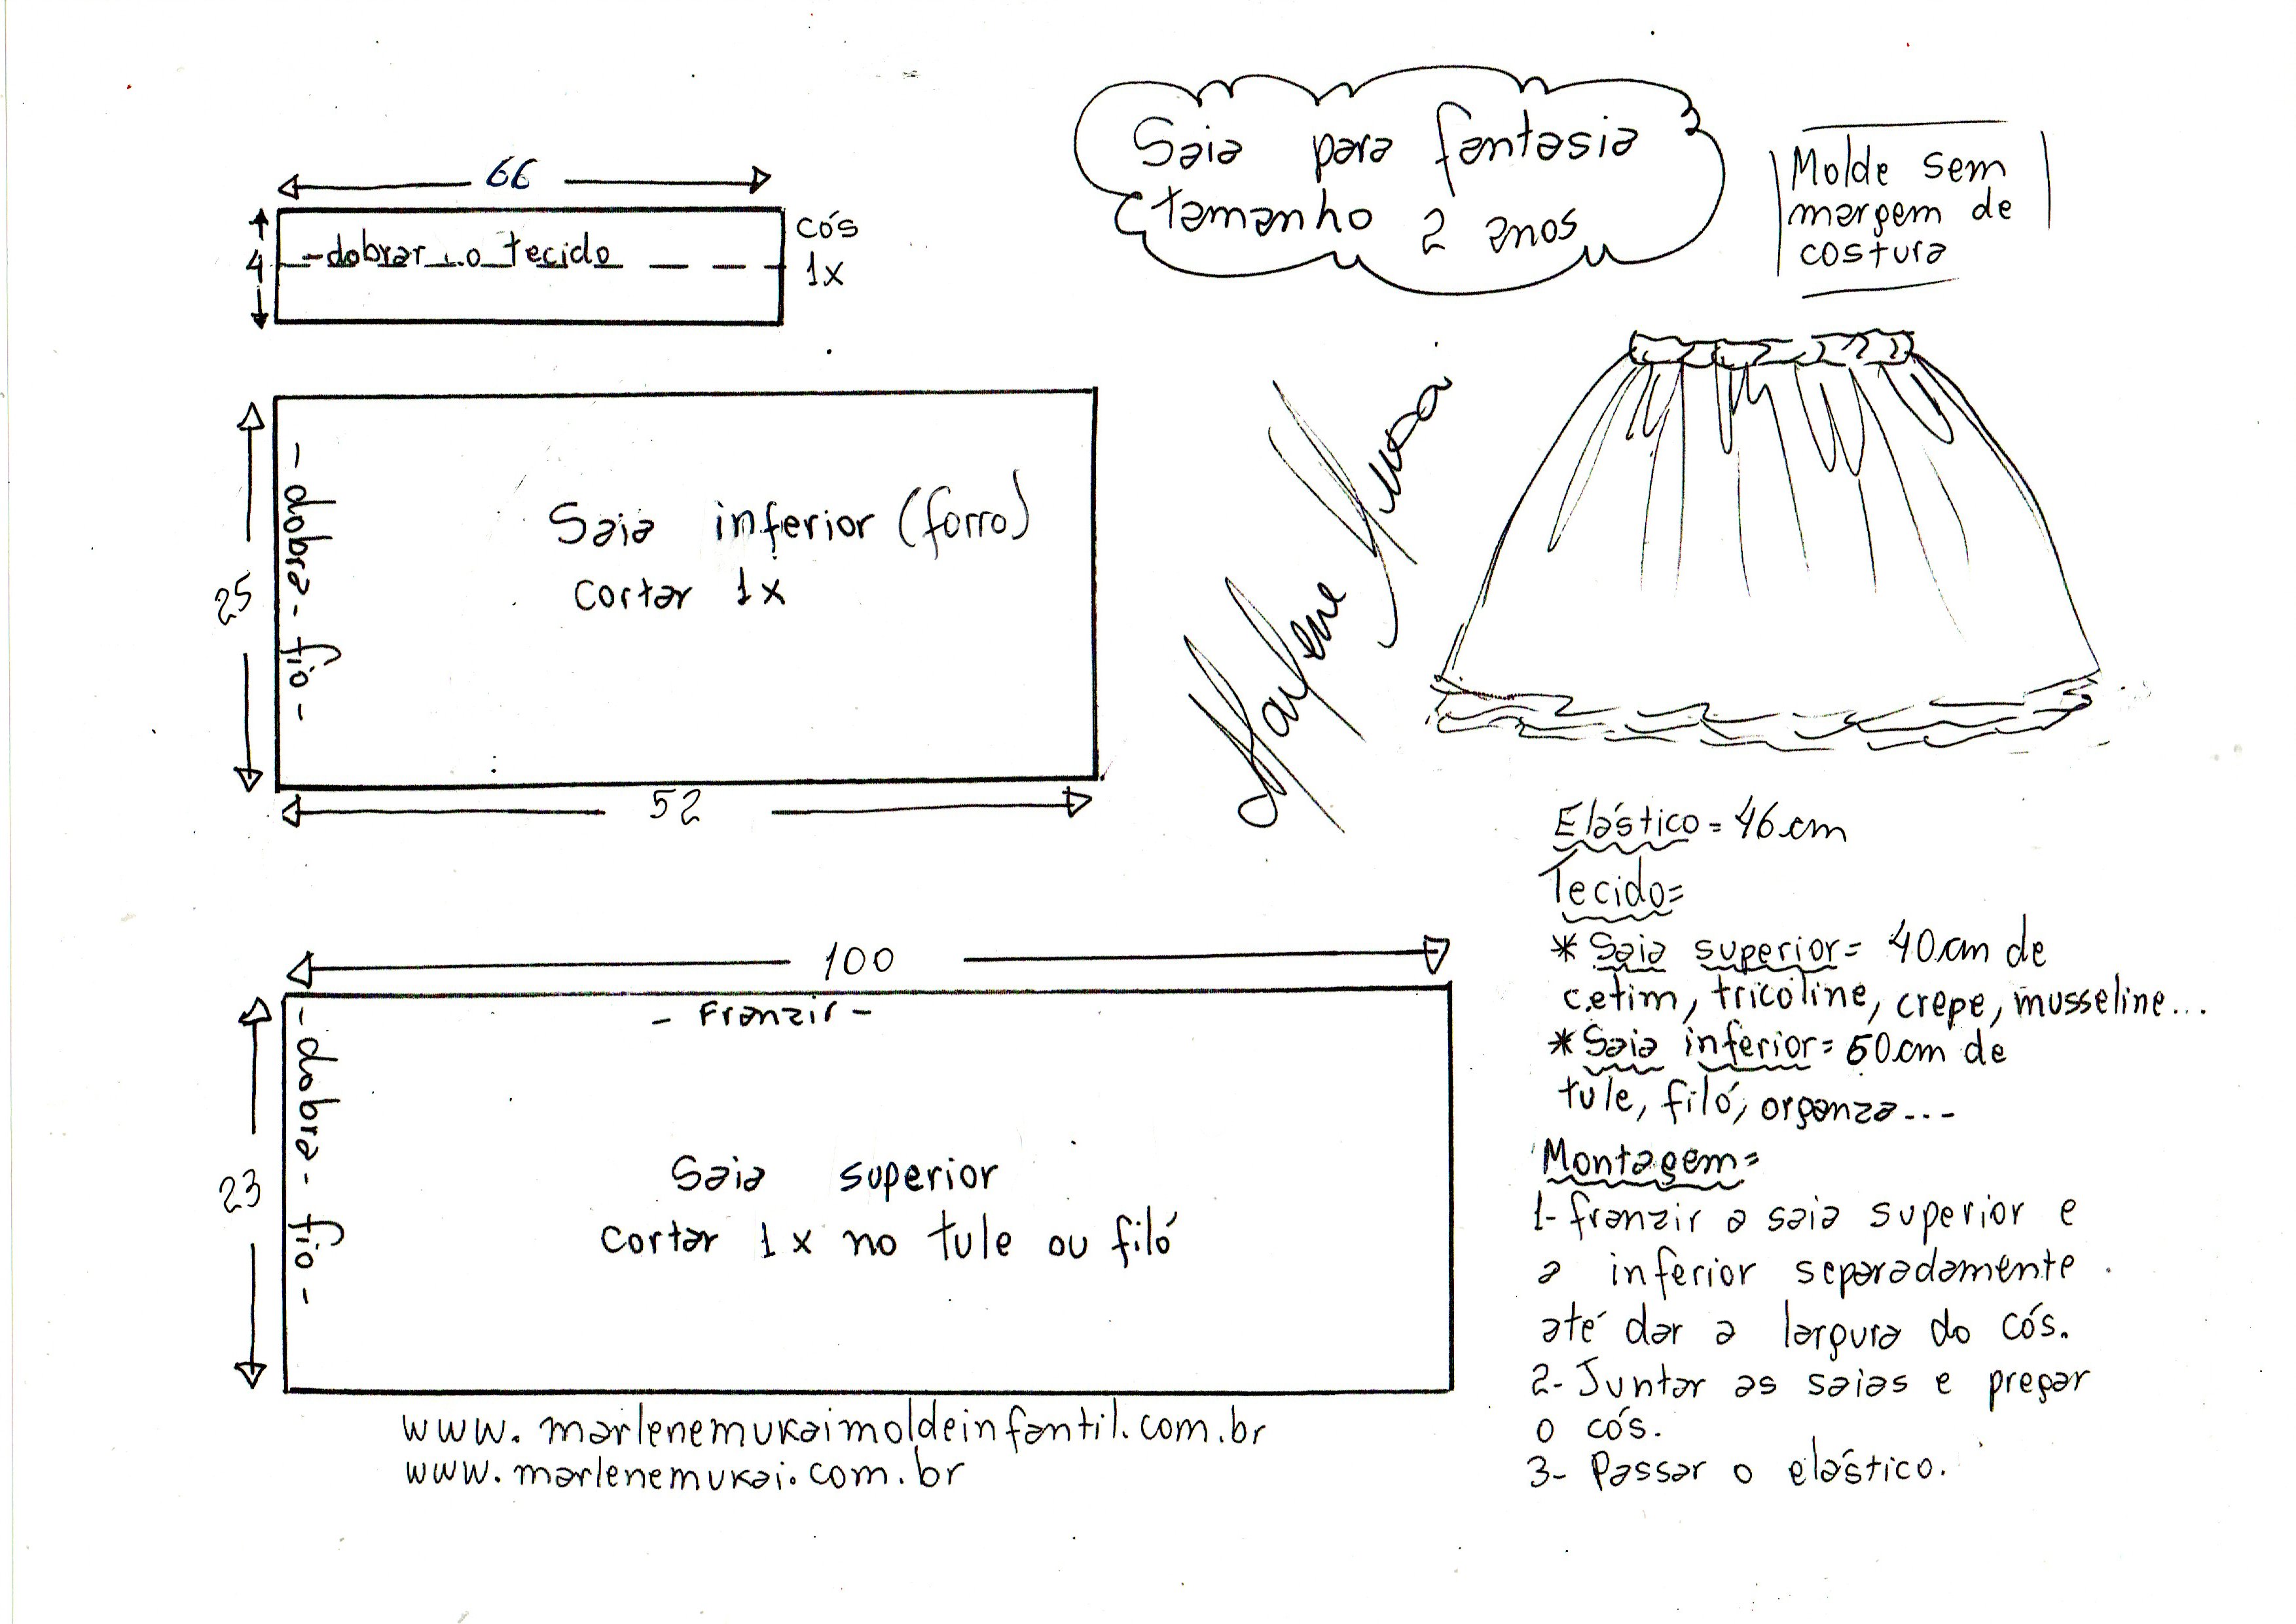 Saia para fantasia
tamanho 2 anos
Molde sem
margem de
costura
66
4
- dobrar o tecido
cós
1x
25
- dobra - fio -
Saia inferior (forro)
cortar 1x
52
Marlene Mukai
100
- Franzir -
23
- dobra - fio -
Saia superior
cortar 1x no tule ou filó
www.marlenemukaimoldeinfantil.com.br
www.marlenemukai.com.br
Elástico = 46 cm
Tecido =
* Saia superior = 40 cm de
cetim, tricoline, crepe, musseline...
* Saia inferior = 50 cm de
tule, filó, organza...
Montagem =
1- franzir a saia superior e
a inferior separadamente
até dar a largura do cós.
2- Juntar as saias e pregar
o cós.
3- Passar o elástico.